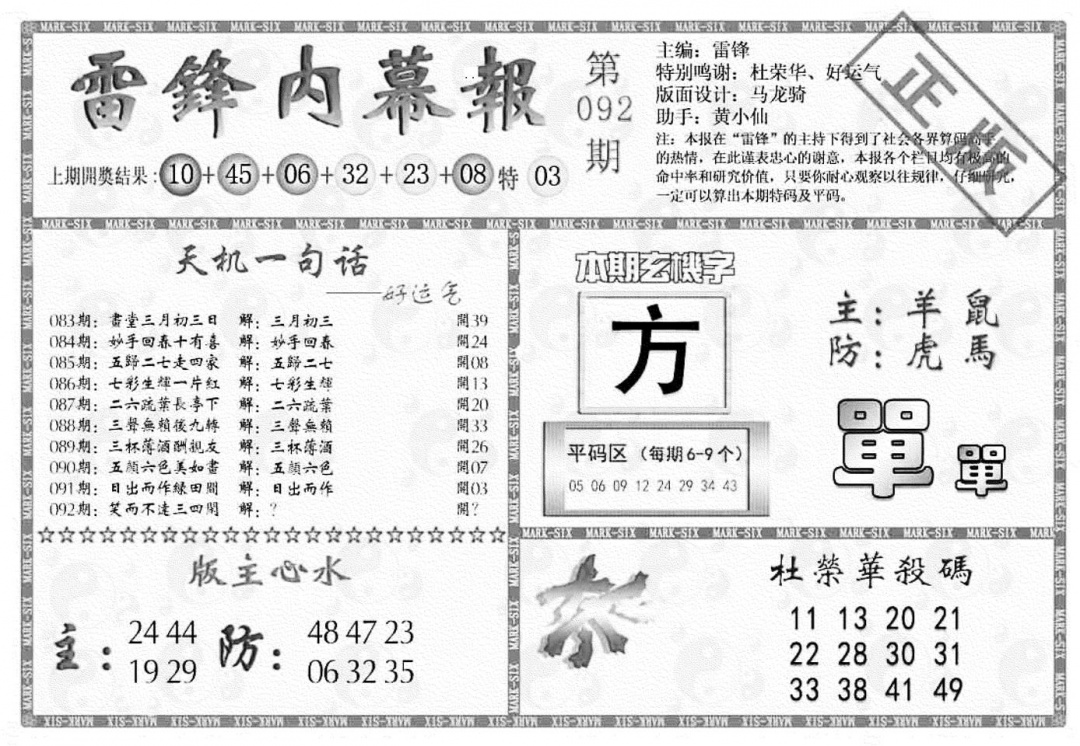 雷鋒内幕報
第
092
期
主编：雷锋
特别鸣谢：杜荣华、好运气
版面设计：马龙骑
助手：黄小仙
注：本报在“雷锋”的主持下得到了社会各界算码高手
的热情，在此谨表忠心的谢意，本报各个栏目均有极高的
命中率和研究价值，只要你耐心观察以往规律，仔细研究，
一定可以算出本期特码及平码。
正版
上期開獎结果：10+45+06+32+23+08特 03
天机一句话
——好运气
083期：書堂三月初三日 解：三月初三 開39
084期：妙手回春十有喜 解：妙手回春 開24
085期：五歸二七走四家 解：五歸二七 開08
086期：七彩生輝一片紅 解：七彩生輝 開13
087期：二六疏葉長亭下 解：二六疏葉 開20
088期：三聲無賴後九轉 解：三聲無賴 開33
089期：三杯薄酒酬親友 解：三杯薄酒 開26
090期：五顔六色美如畫 解：五顔六色 開07
091期：日出而作緑田間 解：日出而作 開03
092期：笑而不達三四間 解：？ 開？
☆☆☆☆☆☆☆☆☆☆☆☆☆☆☆☆☆☆☆☆☆☆☆
版主心水
主：24 44
19 29
防：48 47 23
06 32 35
本期玄機字
方
平码区（每期6-9个）
05 06 09 12 24 29 34 43
主：羊 鼠
防：虎 馬
單 單
杀
杜榮華殺碼
11 13 20 21
22 28 30 31
33 38 41 49
MARK-SIX